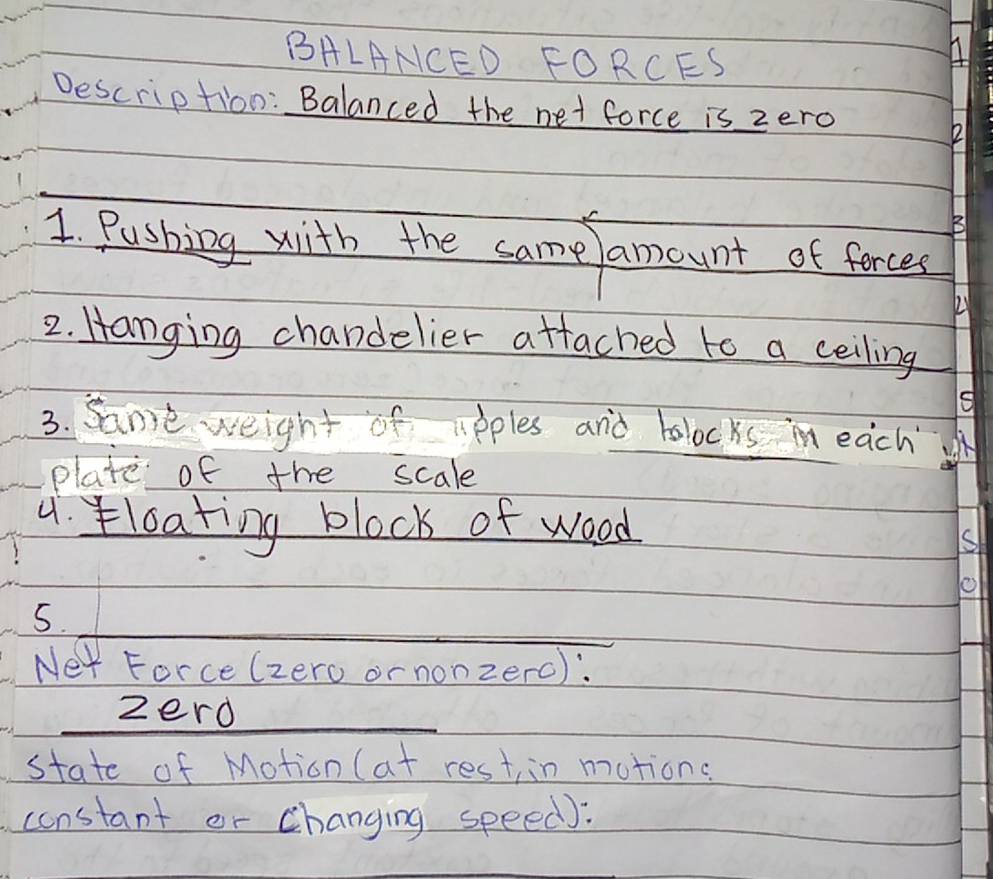 BALANCED FORCES
Description: Balanced the net force is zero
1. Pushing with the same amount of forces
2. Hanging chandelier attached to a ceiling
3. Same weight of apples and blocks in each
plate of the scale
4. Floating block of wood
5.
Net Force (zero or nonzero):
zero
State of Motion (at rest, in motion:
constant or changing speed):